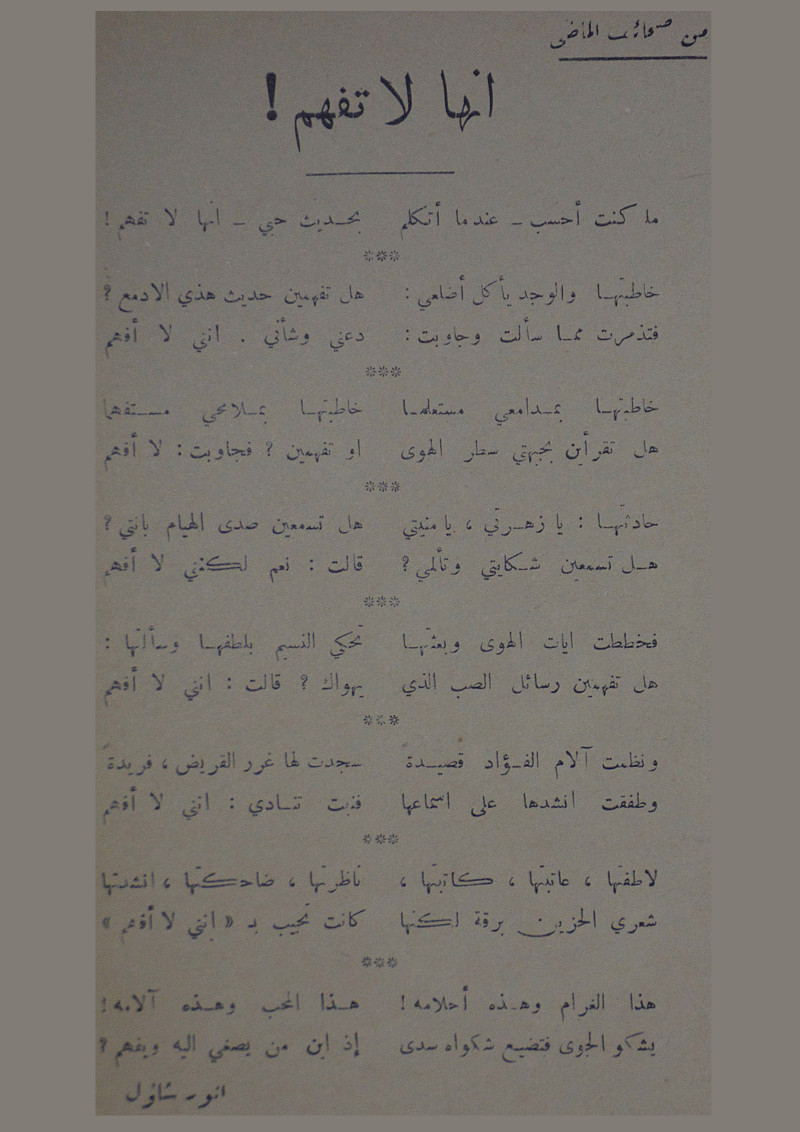 من صحائف الماضي
انها لا تفهم !
ما كنت أحسب ــ عندما أتكلم بحديث حبي ــ انها لا تفهم !
***
خاطبتها والوجد يأكل أضلعي : هل تفهمين حديث هذي الادمع ؟
فتذمرت مما سألت وجاوبت : دعني وشأني . انني لا أفهم
***
خاطبتها بمدامعي مستعلما خاطبتها بملامحي مستفهما
هل تقرأين بجبهتي سطر الهوى او تفهمين ؟ فجاوبت : لا أفهم
***
حادثتها : يا زهرتي ، يا منيتي هل تسمعين صدى الهيام بانتي ؟
هل تسمعين شكايتي وتألمي ؟ قالت : نعم لكنني لا أفهم
***
فخططت ايات الهوى وبعثتها تحكي النسيم بلطفها وسألتها :
هل تفهمين رسائل الصب الذي يهواك ؟ قالت : انني لا أفهم
***
ونظمت آلام الفؤاد قصيدة سجدت لها غرر القريض ، فريدة
وطفقت انشدها على اسماعها فنبت تنادي : انني لا أفهم
***
لاطفتها ، عاتبتها ، كاتبتها ، ناظرتها ، ضاحكتها ، انشدتها
شعري الحزين برقة لكنها كانت تجيب بـ « إنني لا أفهم »
***
هذا الغرام وهذه أحلامه ! هذا المحب وهذه آلامه !
يشكو الجوى فتضيع شكواه سدى إذ اين من يصغي اليه ويفهم ؟
انور شاؤل